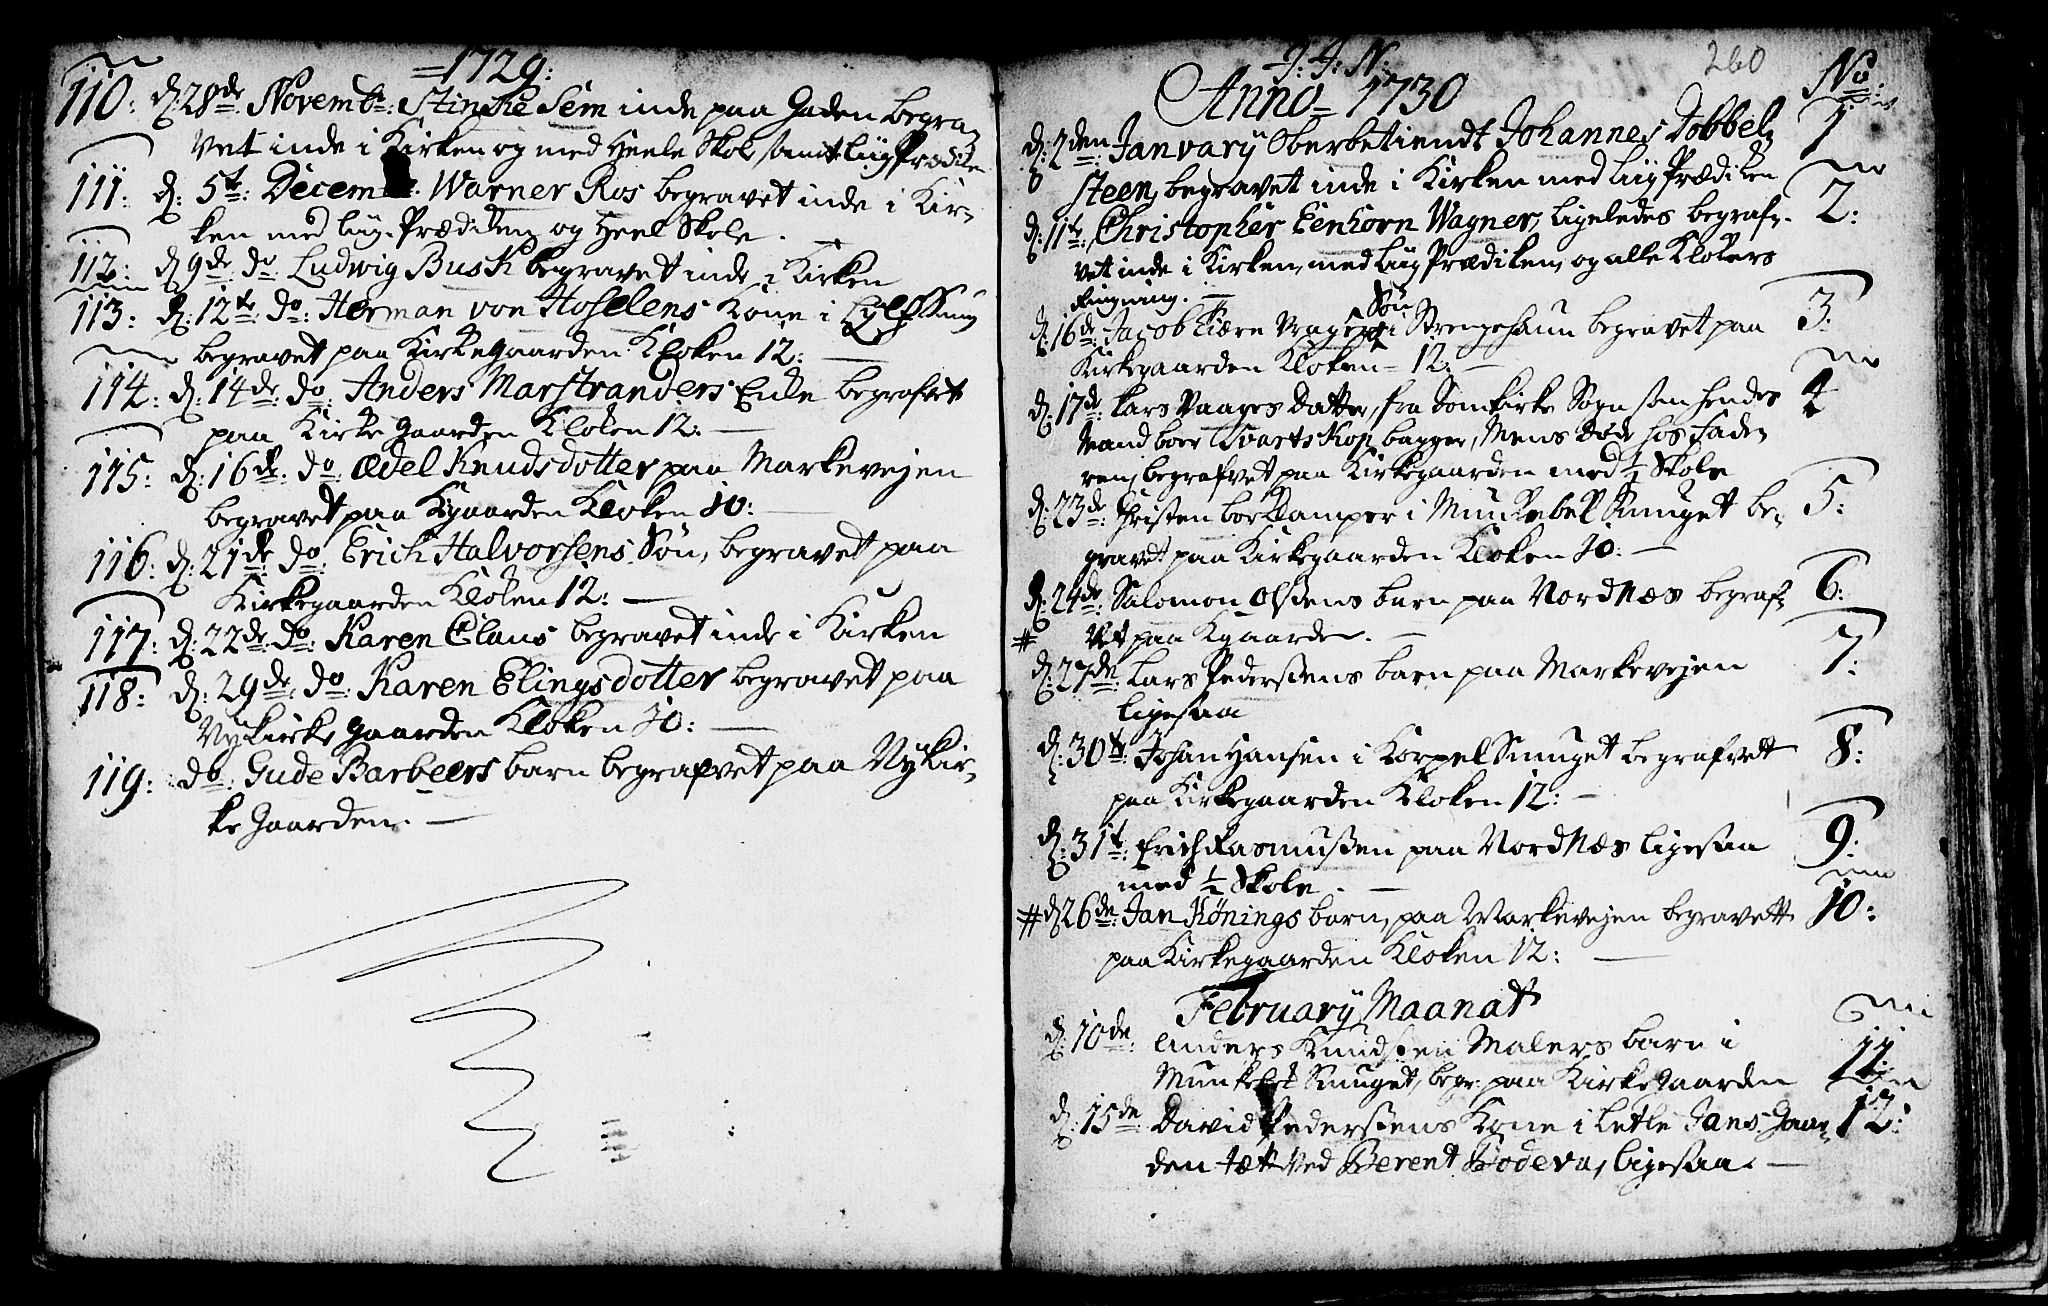 =1729:
110: d: 28de Novembr: Stincke Sem inde paa Gaden begra-
vet inde i Kirken og med Heele Skol samt Liig Prædiken
111: d: 5te: Decem: Warner Ros begravet inde i Kir-
ken med Liig-Prædiken og Heel Skole.
112: d 9de do Ludwig Busk begravet inde i Kirken
113: d: 12te do: Herman von Hoselens Kone i
begravet paa Kirkegaarden Kloken 12:
114: d: 14de: do: Anders Marstranders Enke begrafvet
paa Kirkegaarden Kloken 12:
115: d: 16de: do Ædel Knudsdotter paa Markevejen
begravet paa Kgaarden Kloken 10:
116: d: 21de do: Erich Halvorsens Søn, begravet paa
Kirkegaarden Kloken 12:
117: d: 22de do: Karen Claus begravet inde i Kirken
118: d: 29de, do: Karen Elingsdotter begravet paa
Nykirke gaarden Kloken 10:
119: do: Gude Barbeers barn begrafvet paa Nykir-
ke Gaarden.
J: J: N:
260
Anno 1730
No:
d: 2den January Oberbetiendt Johannes Dobbel- 1
steen, begravet inde i Kirken med Liig Prædiken
d: 11te: Christopher Eenhorn Wagner, ligeledes begraf- 2:
vet inde i Kirken, med Liig Prædiken, og alle Klokers
Ringning.
Søn
d: 16de: Jacob Kiære Vragers i Strengehaun begravet paa 3:
Kirkegaarden Kloken - 12:
d: 17de: Lars Vaages Datter, fra Domkirke Sogn som hendes 4
Mand boer Svartskop bagger, Mens døde hos Fade-
ren, begrafvet paa Kirkegaarden med ½ Skole
d: 23de: Christen i Munkebek Smuget be- 5:
gravet paa Kirkegaarden Kloken 10:
d: 24de: Salomon Olsens barn paa Nordnæs begraf- 6:
# vet paa Kgaarden.
d: 27de: Lars Pedersens barn paa Markevejen 7:
ligesaa
d: 30te: Johan Hansen i Korpel Smuget begrafvet 8:
paa Kirkegaarden Kloken 12:
d: 31t: Erich Rasmussen paa Nordnæs ligesaa 9:
med ½ Skole.
# d 26de: Jan Kønings barn, paa Markevejen begravett 10:
paa Kirkegaarden Kloken 12:
February Maanat
d: 10de: Anders Knudsen Malers barn i 11:
Smuget, begr: paa Kirkegaarden
d: 15de David Pedersens Kone i Letle Jans Gaar- 12:
den tæt ved Berent Bodeva, ligesaa.